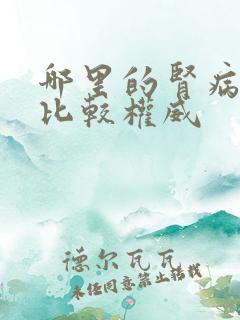 哪里的肾病
比较權威
德尔瓦瓦
未经同意禁止转载